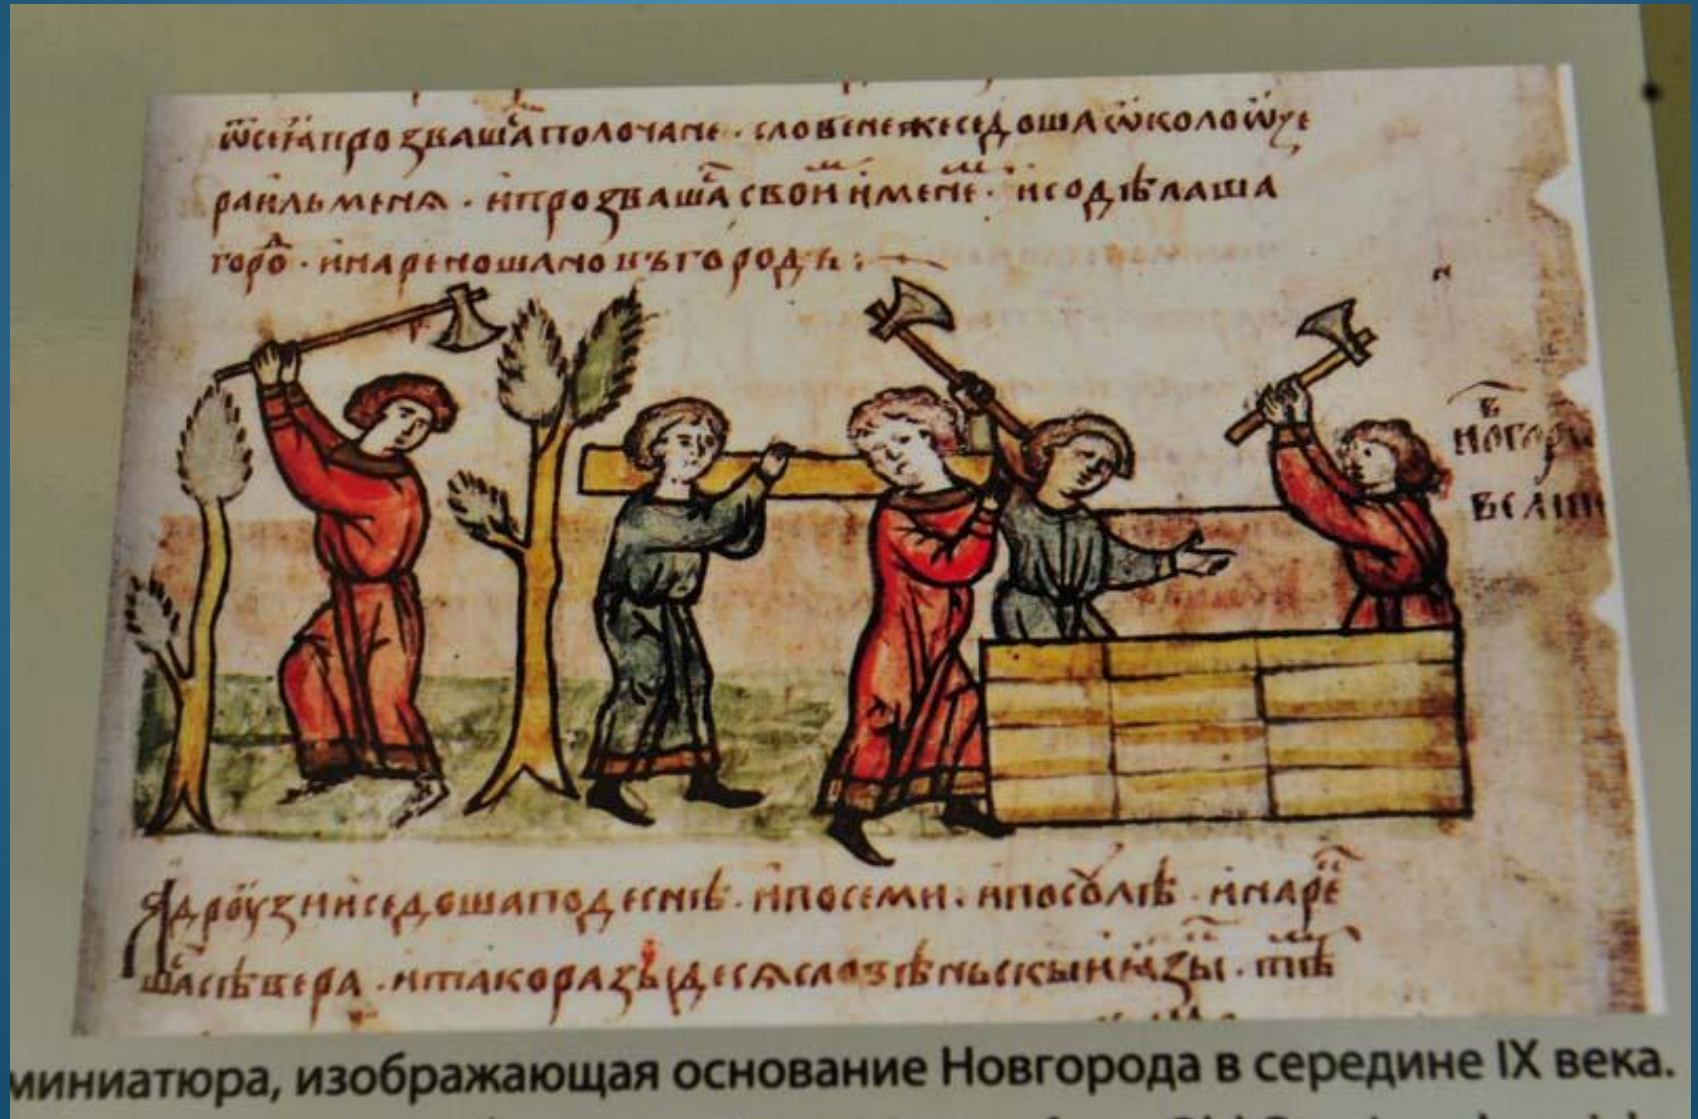 ѿсеѧпрозвашасѧполочане · словенежеседошаѡколоѡзе
раильменѧ · ипрозвашасѧсвоимъимене · исодѣлаша
горо · инарекошановъгородъ :
в
новгоро
велик
ꙗдроузииседошаподеснѣ · ипосеми · ипосулѣ · инаре
шасѣвера · итакоразыдесѧсловѣньскыиꙗзы · тѣ
миниатюра, изображающая основание Новгорода в середине IX века.